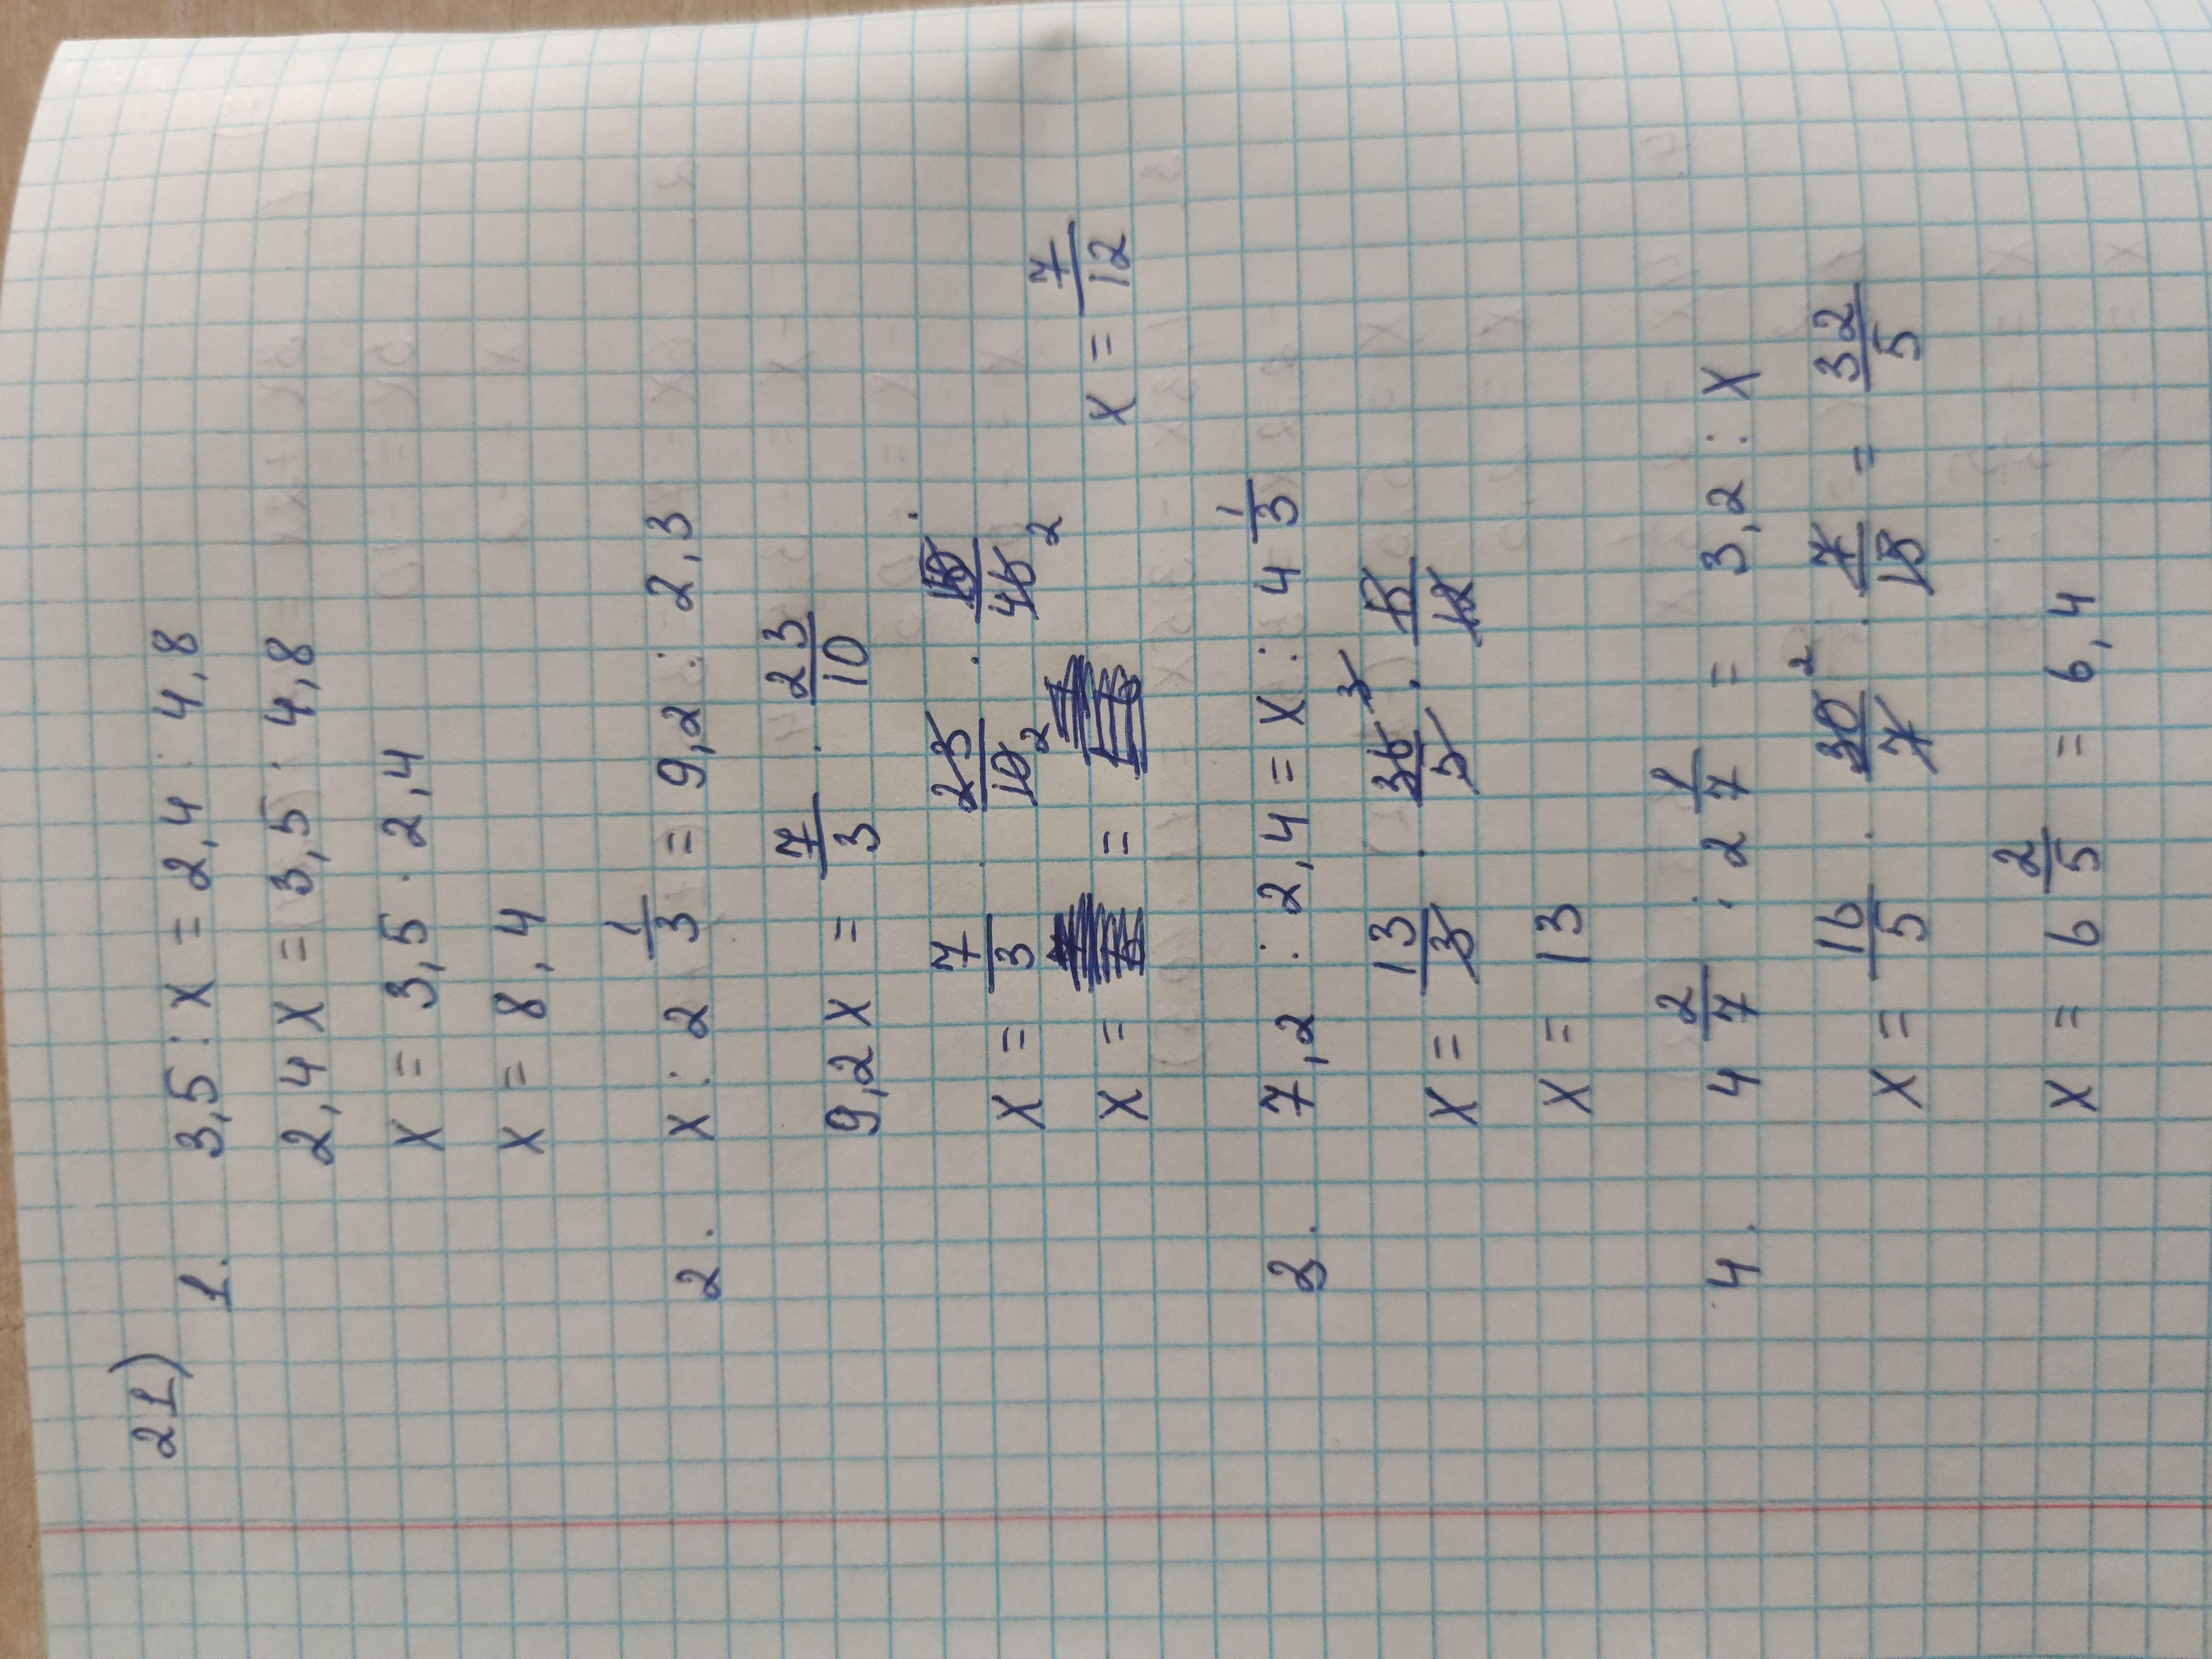 21)
1. 3,5 : x = 2,4 : 4,8
2,4 x = 3,5 : 4,8
x = 3,5 · 2,4
x = 8,4
2. x : 2 1/3 = 9,2 : 2,3
9,2 x = 7/3 · 23/10
x = 7/3 · 23/10 2 · 10/46 2
x = = x = 7/12
3. 7,2 : 2,4 = x : 4 1/3
x = 13/3 · 36/5 3 · 5/12
x = 13
4. 4 2/7 : 2 1/7 = 3,2 : x
x = 16/5 · 30/7 2 · 7/15 = 32/5
x = 6 2/5 = 6,4